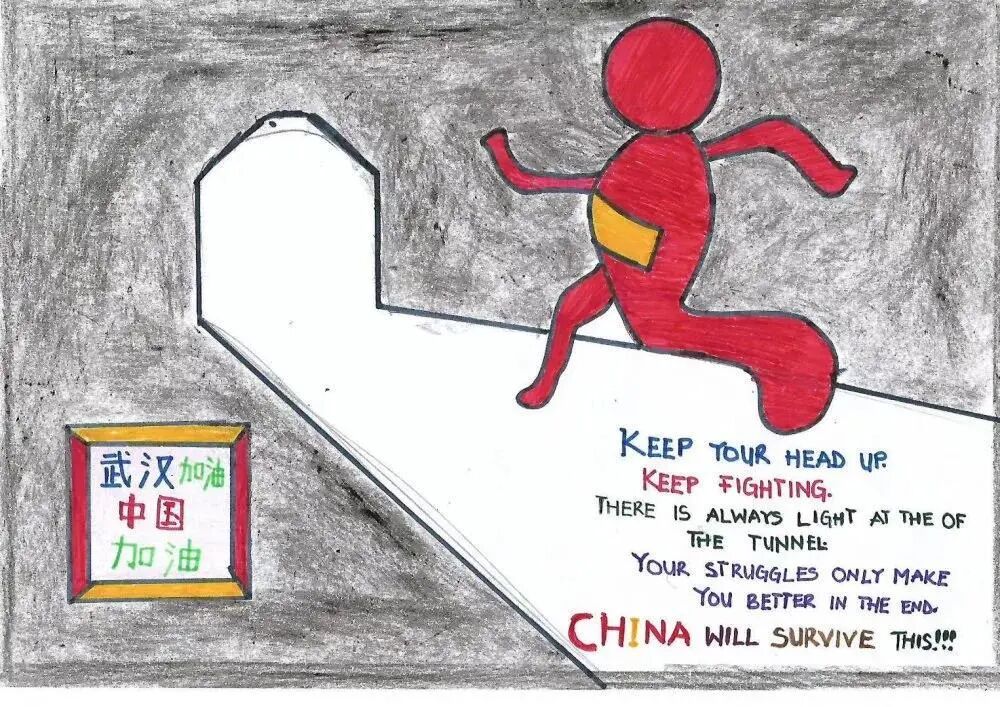 武汉加油
中国
加油
KEEP YOUR HEAD UP.
KEEP FIGHTING.
THERE IS ALWAYS LIGHT AT THE OF
THE TUNNEL.
YOUR STRUGGLES ONLY MAKE
YOU BETTER IN THE END.
CHINA WILL SURVIVE THIS!!!